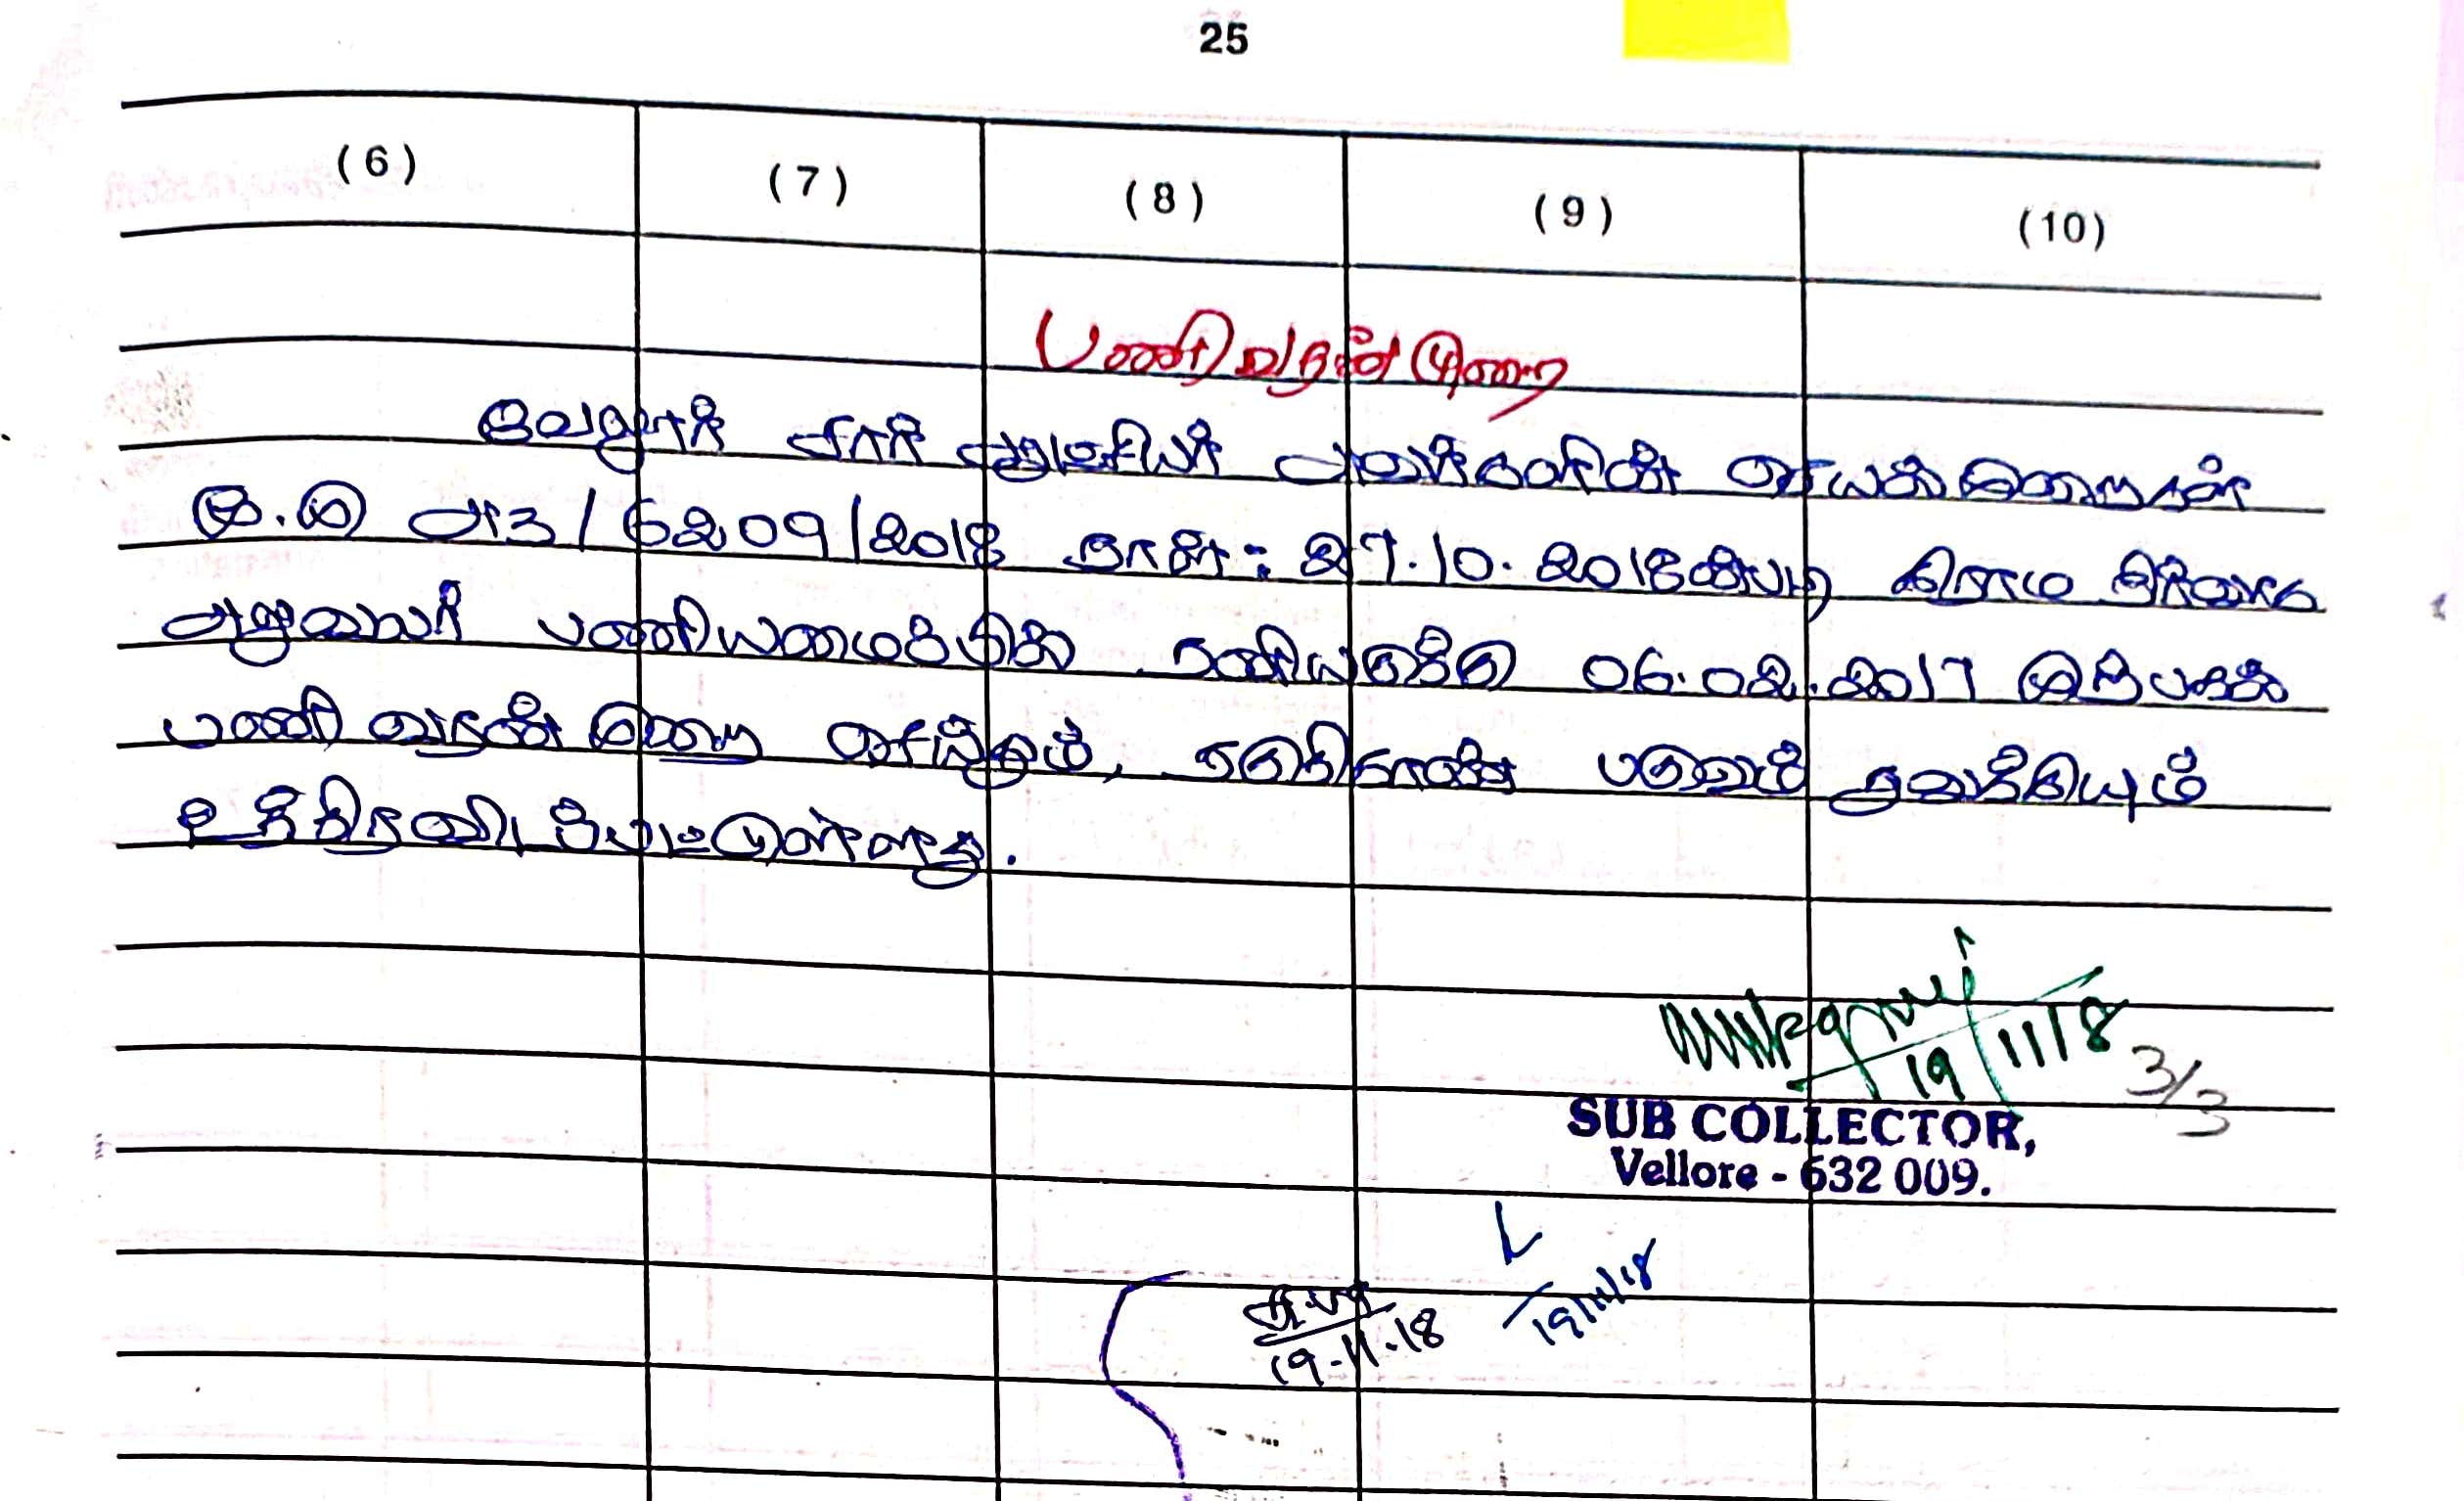 25
(6) (7) (8) (9) (10)
பணிவரன்முறை
வேலூர் சார் ஆட்சியர் அவர்களின் செயல்முறைகள்
மு.மு அ3/6209/2018 நாள்: 27.10.2018ன்படி கிராம நிர்வாக
அலுவலர் பணியமைப்பில் தனியருக்கு 06.02.2017 முற்பகல்
பணி வரன்முறை செய்தும், தகுதிகாண் பருவம் துவக்கியும்
உத்திரவிடப்பட்டுள்ளது.
19/11/18
3/3
SUB COLLECTOR,
Vellore - 632 009.
19/11/18
19-11-18